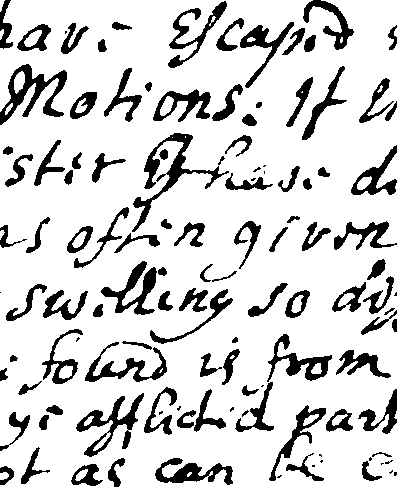 have Escaped
Motions: If
ister have
as often given
swelling so
found is from
ye afflicted part
ot as can be